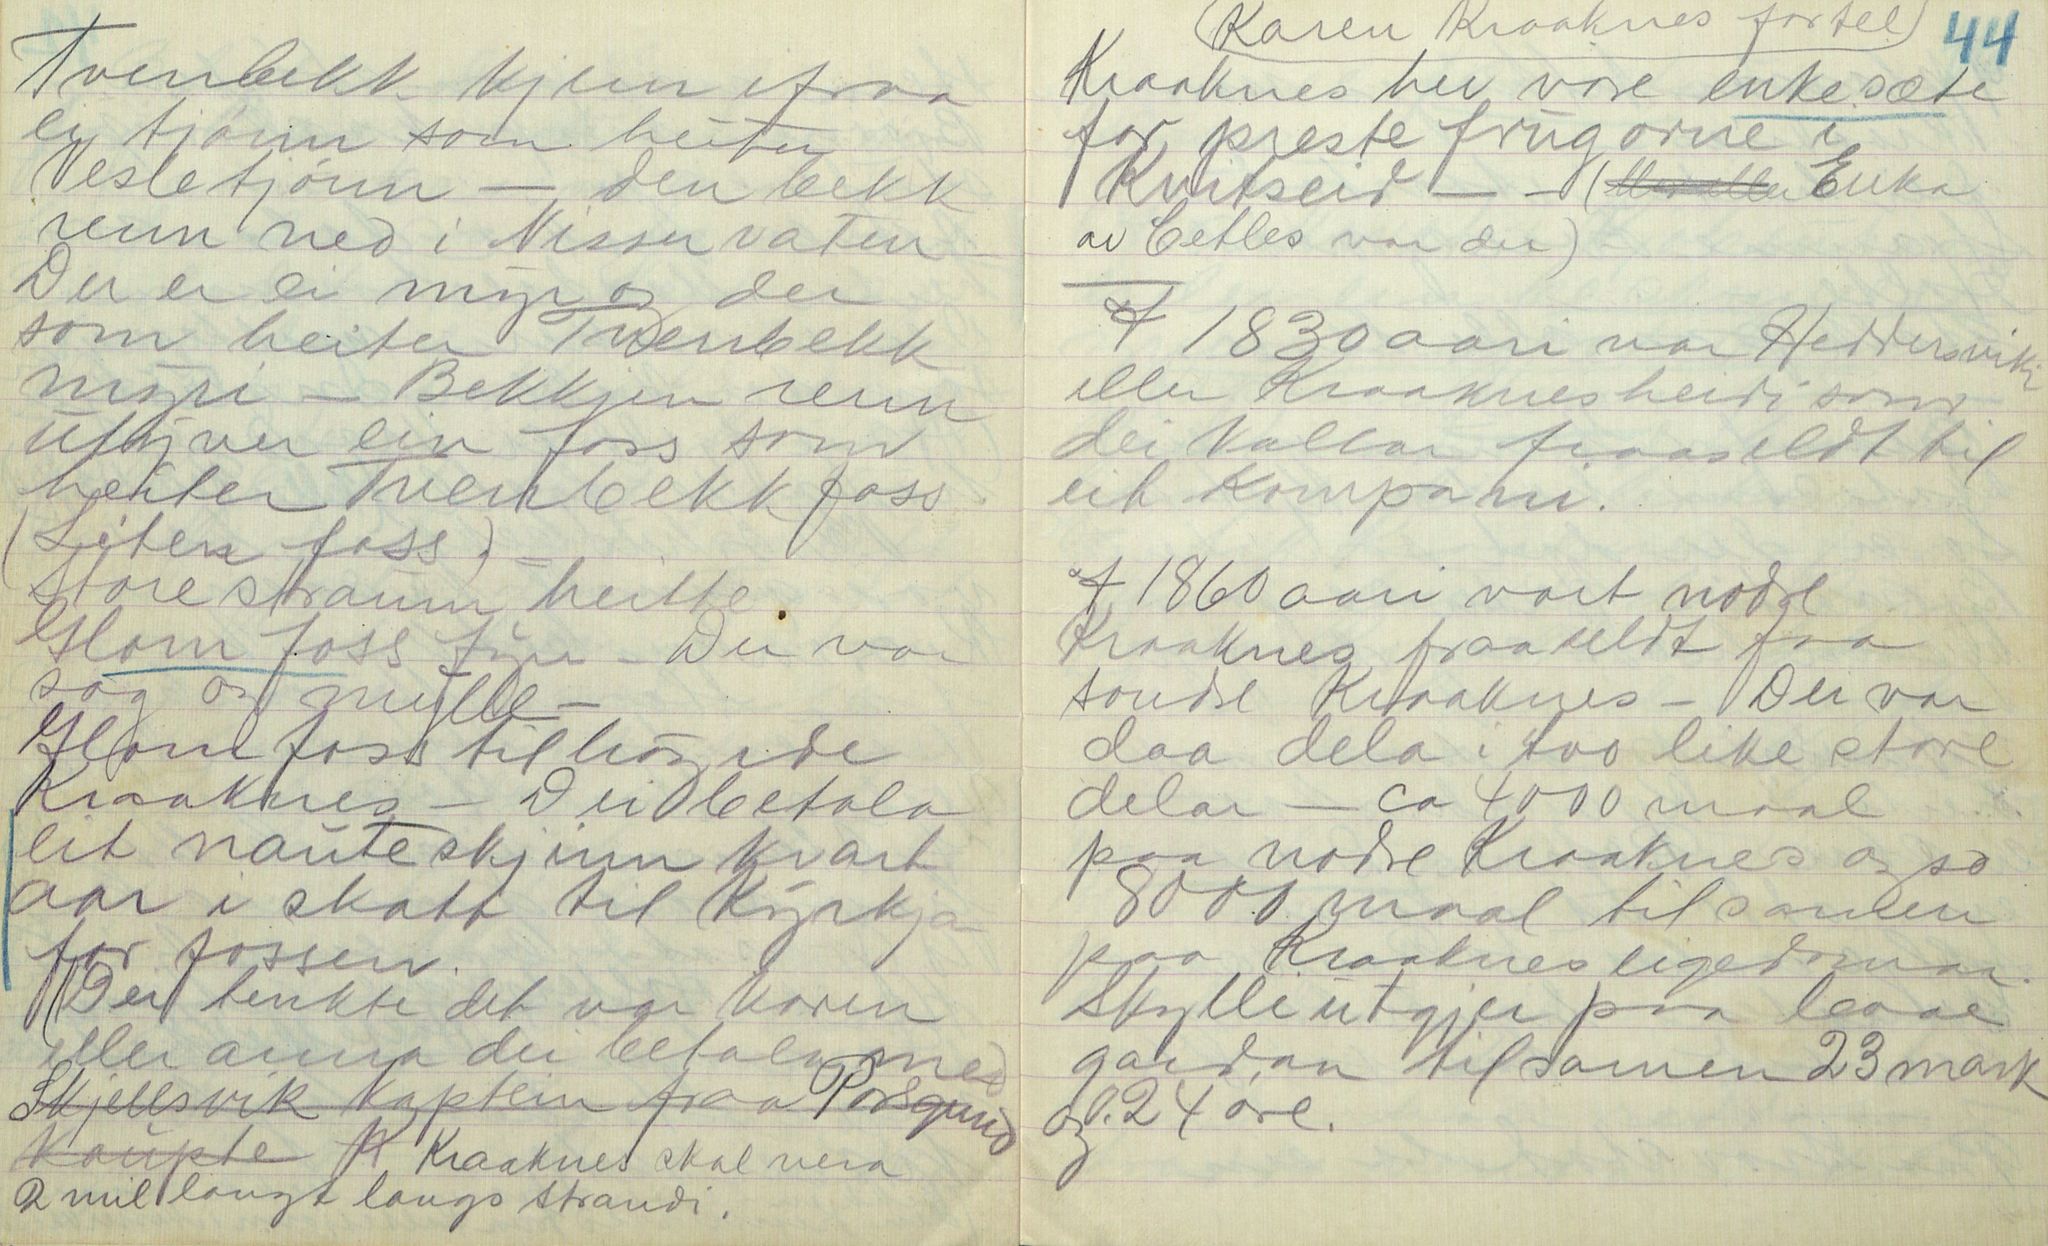 Tvenbekk kjem ifraa
ei tjónn som heiter
Vesletjónn — den bekk
renn ned i Nisservaten
Der er ei myr og der
som heiter Tvenbekk
myri — Bekkjen renn
utyver ein foss som
heiter Tvenbekkfoss
(Liten foss) –
Storestraum heitte
Glomfoss fyrr – Der var
sag og mylle –
Glomfoss tilhøyrde
Kraaknes – Dei betala
eit nauteskjinn kvart
aar i skatt til Kyrkja
for fossen.
(Dei tenkte det var koren
eller anna dei betala med
Skjellsvik Kaptein fraa Porsgrund
kaupte K Kraaknes skal vera
2 mil langt langs strandi.
(Karen Kraaknes fortel) 44
Kraaknes hev vore enkesæte
for prestefrugorne i
Kvitseid – – ( Enka
av Cetles var der)
I 1830 aari var Heddersviki
eller Kraaknesheidi som
dei kallar fraaseldt til
eit Kompani.
I 1860 aari vart nodre
Kraaknes fraaseldt fraa
sondre Kraaknes – Dei var
daa dela i tvo like store
delar – ca 4000 maal
paa nodre Kraaknes og so
8000 maal tilsamen
paa Kraaknes eigedomar.
Skylli utgjer paa baae
gardan tilsamen 23 mark
og 0.24 øre.